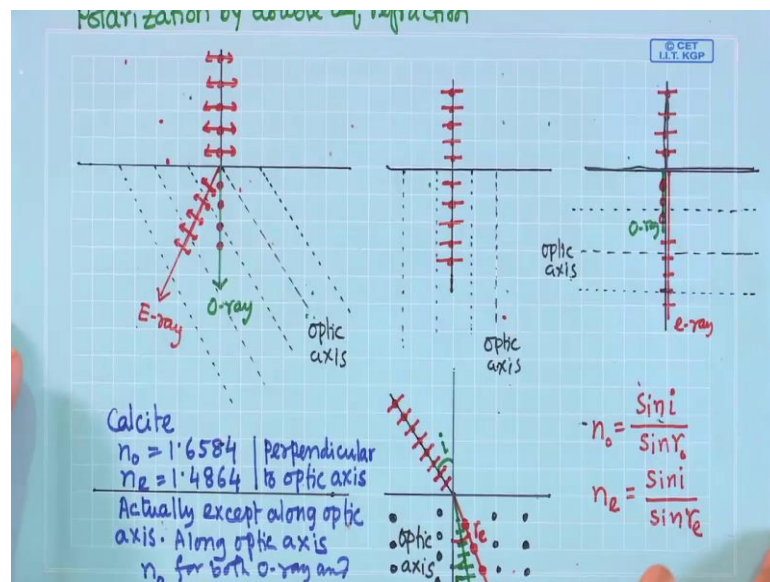 Polarization by double refraction
© CET
I.I.T. KGP
E-ray
O-ray
optic
axis
optic
axis
optic
axis
O-ray
e-ray
Calcite
n₀ = 1.6584 | perpendicular
nₑ = 1.4864 | to optic axis
Actually except along optic
axis. Along optic axis
n₀ for both O-ray and
i
rₑ
optic
axis
n₀ = sin i / sin r₀
nₑ = sin i / sin rₑ